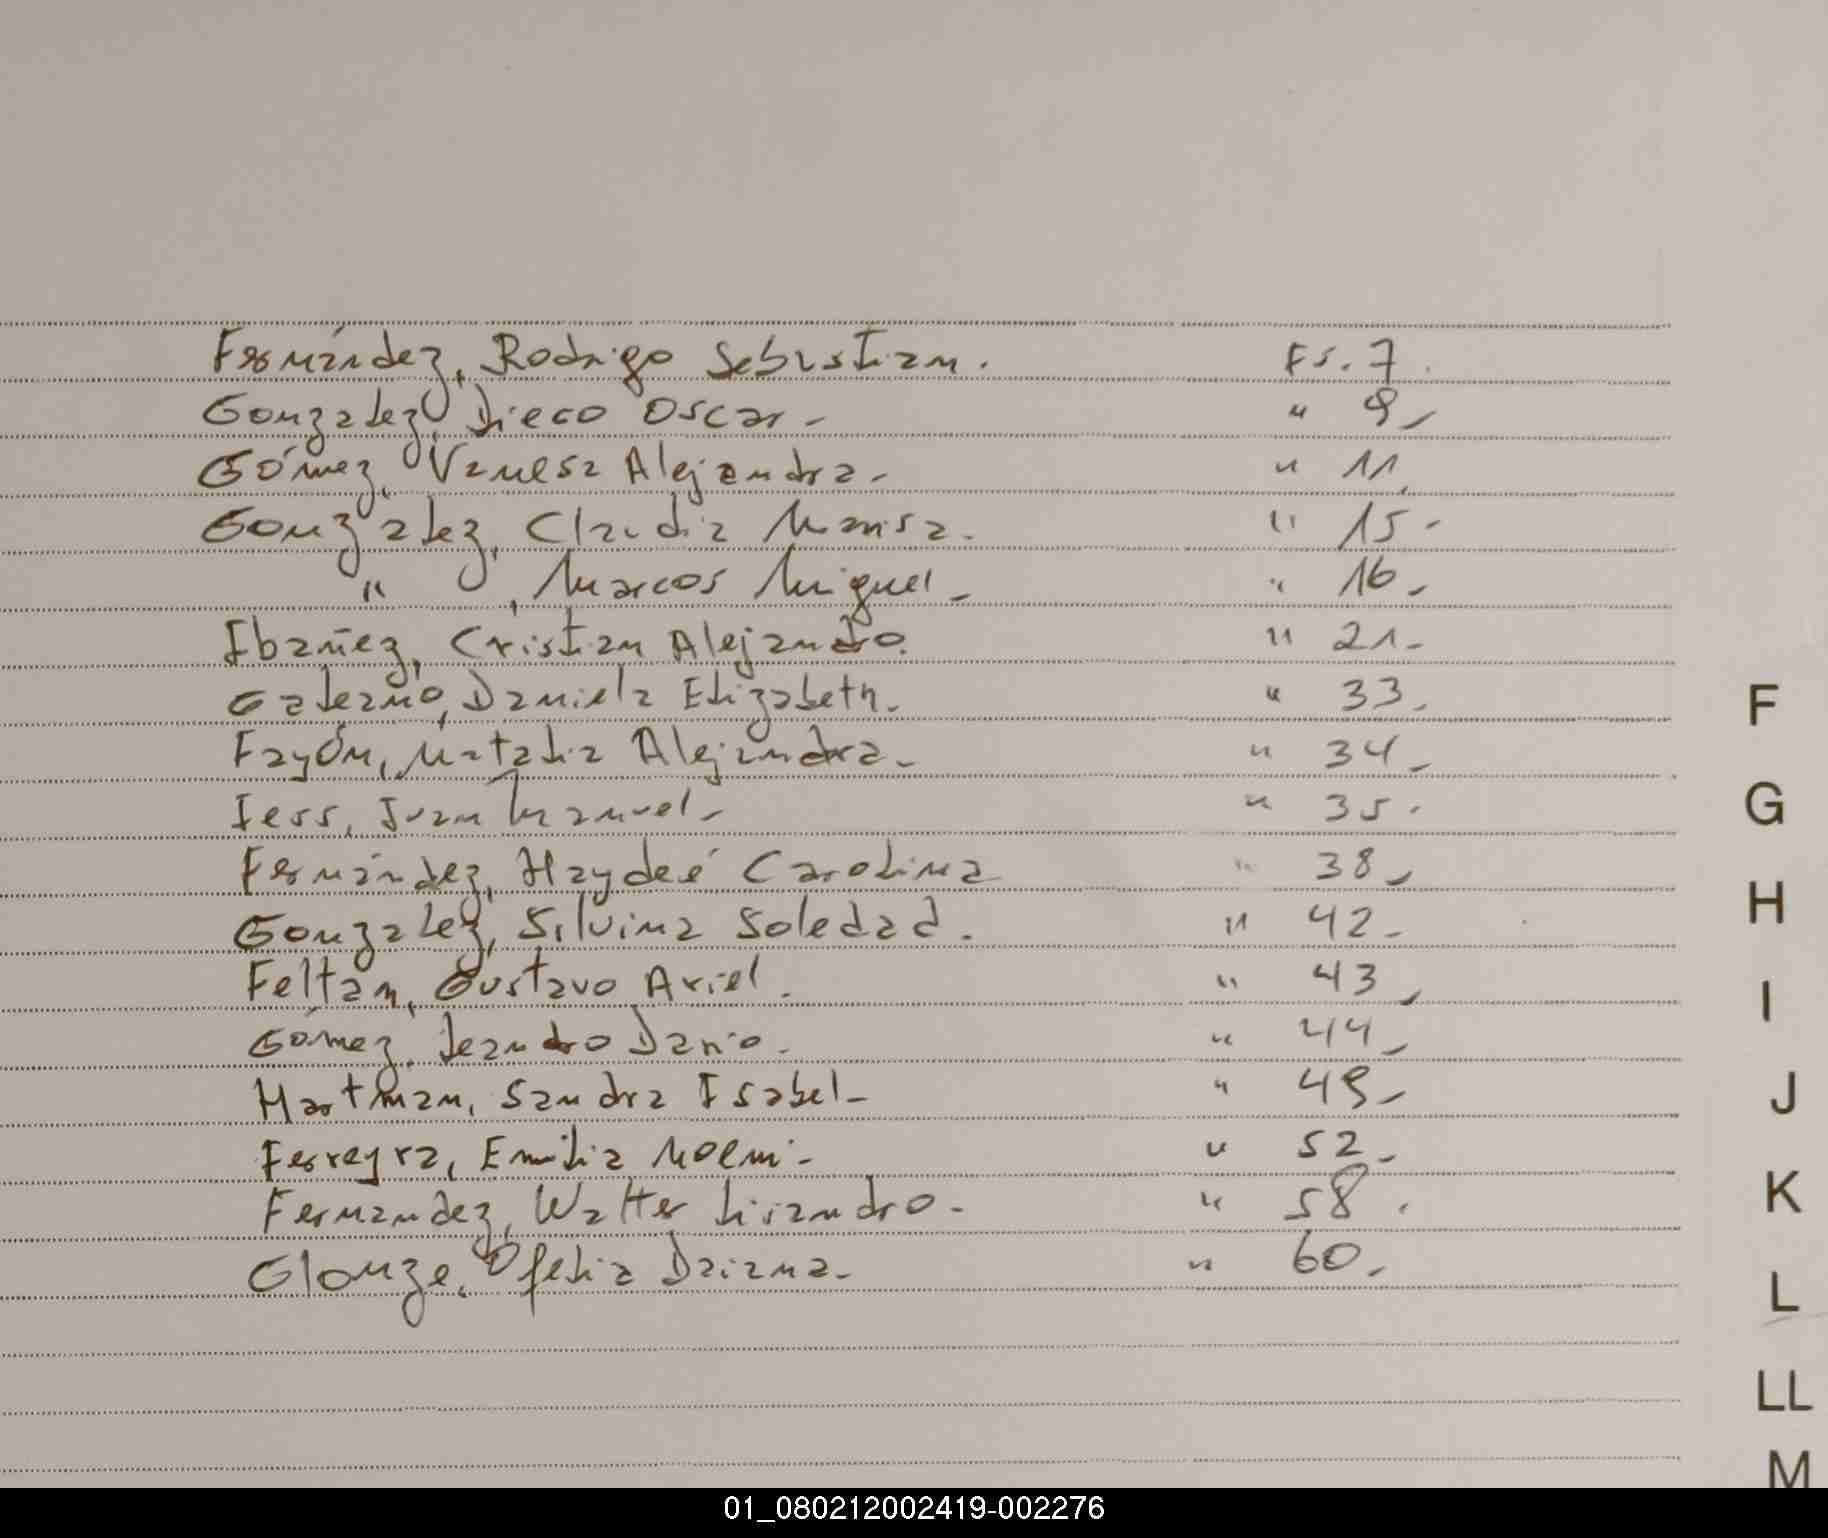 Fernández, Rodrigo Sebastian. Fs. 7.
Gonzalez, Diego Oscar - " 9 -
Gómez, Vanesa Alejandra - " 11.
Gonzalez, Claudia Marisa. " 15 -
" , Marcos Miguel - " 16 -
Ibañez, Cristian Alejandro. " 21 -
Galeano, Daniela Elizabeth. " 33 -
Fayón, Natalia Alejandra - " 34 -
Iess, Juan Manuel - " 35 .
Fernández, Haydeé Carolina " 38 -
Gonzalez, Silvina Soledad. " 42 -
Feltan, Gustavo Ariel. " 43 -
Gómez, Leandro Dario. " 44 -
Hartman, Sandra Isabel - " 49 -
Ferreyra, Emilia Noemi - " 52 -
Fernandez, Walter Lisandro - " 58 .
Glonze, Ofelia Daiana - " 60 -
F
G
H
I
J
K
L
LL
M
01_080212002419-002276